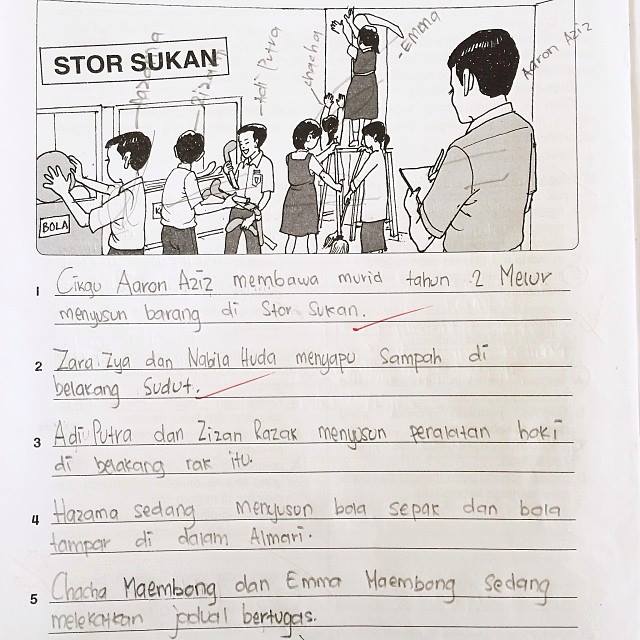 STOR SUKAN
Hazama
Zizan
-Adi Putra
chacha
-Emma
Aaron Aziz
BOLA
1 Cikgu Aaron Aziz membawa murid tahun 2 Melur
menyusun barang di Stor Sukan.
2 Zara Zya dan Nabila Huda menyapu Sampah di
belakang sudut.
3 Adi Putra dan Zizan Razak menyusun peralatan hoki
di belakang rak itu.
4 Hazama sedang menyusun bola sepak dan bola
tampar di dalam Almari.
5 Chacha Maembong dan Emma Maembong sedang
melekatkan jadual bertugas.